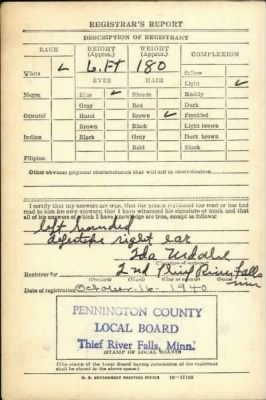 REGISTRAR'S REPORT
DESCRIPTION OF REGISTRANT
RACE HEIGHT (Approx.) WEIGHT (Approx.) COMPLEXION
White ✓ 6 FT 180 Sallow
EYES HAIR Light ✓
Negro Blue ✓ Blonde Ruddy
Gray Red Dark
Oriental Hazel Brown ✓ Freckled
Brown Black Light brown
Indian Black Gray Dark brown
Bald Black
Filipino
Other obvious physical characteristics that will aid in identification
I certify that my answers are true; that the person registered has read or has had
read to him his own answers; that I have witnessed his signature or mark and that
all of his answers of which I have knowledge are true, except as follows:
left handed
defective right ear
Ida
(Signature of registrar)
Registrar for 2nd Thief River Falls Minn
(Precinct) (Ward) (City or county) (State)
Date of registration October-16-1940
PENNINGTON COUNTY
LOCAL BOARD
Thief River Falls, Minn.
(STAMP OF LOCAL BOARD)
(The stamp of the Local Board having jurisdiction of the registrant
shall be placed in the above space.)
U. S. GOVERNMENT PRINTING OFFICE